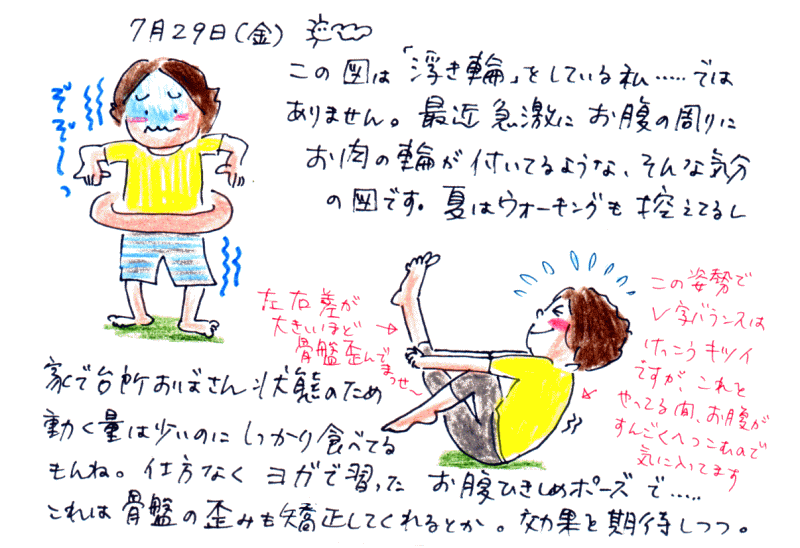 7月29日(金)
この図は「浮き輪」をしている私‥‥‥では
ありません。最近急激にお腹の周りに
お肉の輪が付いてるような、そんな気分
の図です。夏はウォーキングも控えてるし
ぞぞ〜っ
この姿勢で
V字バランスは
けっこうキツイ
ですが、これを
やってる間、お腹が
すんごくへっこむので
気に入ってます
左右差が
大きいほど
骨盤歪んで
まっせ〜
家で台所おばさん状態のため
動く量は少いのにしっかり食べてる
もんね。仕方なくヨガで習ったお腹ひきしめポーズで‥‥‥
これは骨盤の歪みも矯正してくれるとか。効果を期待しつつ。